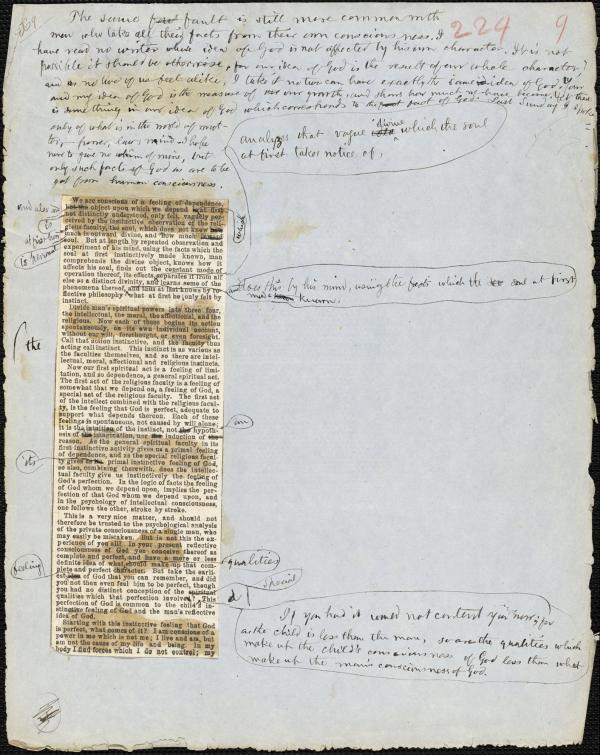 224 9
The same fault is still more common with
men who take all their facts from their own consciousness. I
have read no writer whose idea of God is not affected by his own character. It is not
possible it should be otherwise, for our idea of God is the result of our whole character;
and as no two of us feel alike, I take it no two can have exactly the same idea of God,
and my idea of God is the measure of my growth, and shows how much
is something in our idea of God which corresponds to the fact of God. Last Sunday I spoke
only of what is in the world of mat-
ter,
now to give no whim of mine, but
only such facts of God as are to be
got from human consciousness.
analyzes that vague divine which the soul
at first takes notice of,
We are conscious of a feeling of dependence,
but the object upon which we depend is at first
not distinctly understood, only felt, vaguely per-
ceived by the instinctive observation of the reli-
gious faculty, the soul, which does not know how
much is outward divine, and how much inward
soul. But at length by repeated observation and
experiment of his mind, using the facts which the
soul at first instinctively made known, man
comprehends the divine object, knows how it
affects his soul, finds out the constant mode of
operation thereof, its effects, separates it from all
else as a distinct divinity, and learns some of the
phenomena thereof, and thus at last knows by re-
flective philosophy what at first he only felt by
instinct.
which
Does this by his mind, using the facts which the soul at first
made known,
Divide man's spiritual powers into three four,
the intellectual, the moral, the affectional, and the
religious. Now each of these begins its action
spontaneously, on its own individual account,
without our will, forethought, or even foresight.
Call that action instinctive, and the faculty thus
acting call instinct. This instinct is as various as
the faculties themselves, and so there are intel-
lectual, moral, affectional and religious instincts.
the
Now our first spiritual act is a feeling of limi-
tation, and so dependence, a general spiritual act.
The first act of the religious faculty is a feeling of
somewhat that we depend on, a feeling of God, a
special act of the religious faculty. The first act
of the intellect combined with the religious facul-
ty, is the feeling that God is perfect, adequate to
support what depends thereon. Each of these
feelings is spontaneous, not caused by will alone;
it is the intuition of the instinct, not the hypoth-
esis of the imagination, nor the induction of the
reason. As the general spiritual faculty in its
first instinctive activity gives us a primal feeling
of dependence, and as the special religious facul-
ty gives us its primal instinctive feeling of God,
so also, combining therewith, does the intellec-
tual faculty give us instinctively the feeling of
God's perfection. In the logic of facts the feeling
of God whom we depend upon, implies the per-
fection of that God whom we depend upon, and
in the psychology of intellectual consciousness,
one follows the other, stroke by stroke.
an
its
This is a very nice matter, and should not
therefore be trusted to the psychological analysis
of the private consciousness of a single man, who
may easily be mistaken. But is not this the ex-
perience of you all? In your present reflective
consciousness of God you conceive thereof as
complete and perfect, and have a more or less
definite idea of what should make up that com-
plete and perfect character. But take the earli-
est of God that you can remember, and did
you not then even feel him to be perfect, though
you had no distinct conception of the spiritual
qualities which that perfection involved? This
perfection of God is common to the child's in-
stinctive feeling of God and the man's reflective
idea of God.
feeling
qualities
special
If you had it would not content you now; for
as the child is less than the man, so are the qualities which
make up the child's consciousness of God less than what
make up the man's consciousness of God.
Starting with this instinctive feeling that God
is perfect, what comes of it? I am conscious of a
power in me which is not me; I live and am, but
am not the cause of my life and being. In my
body I find forces which I do not control; my